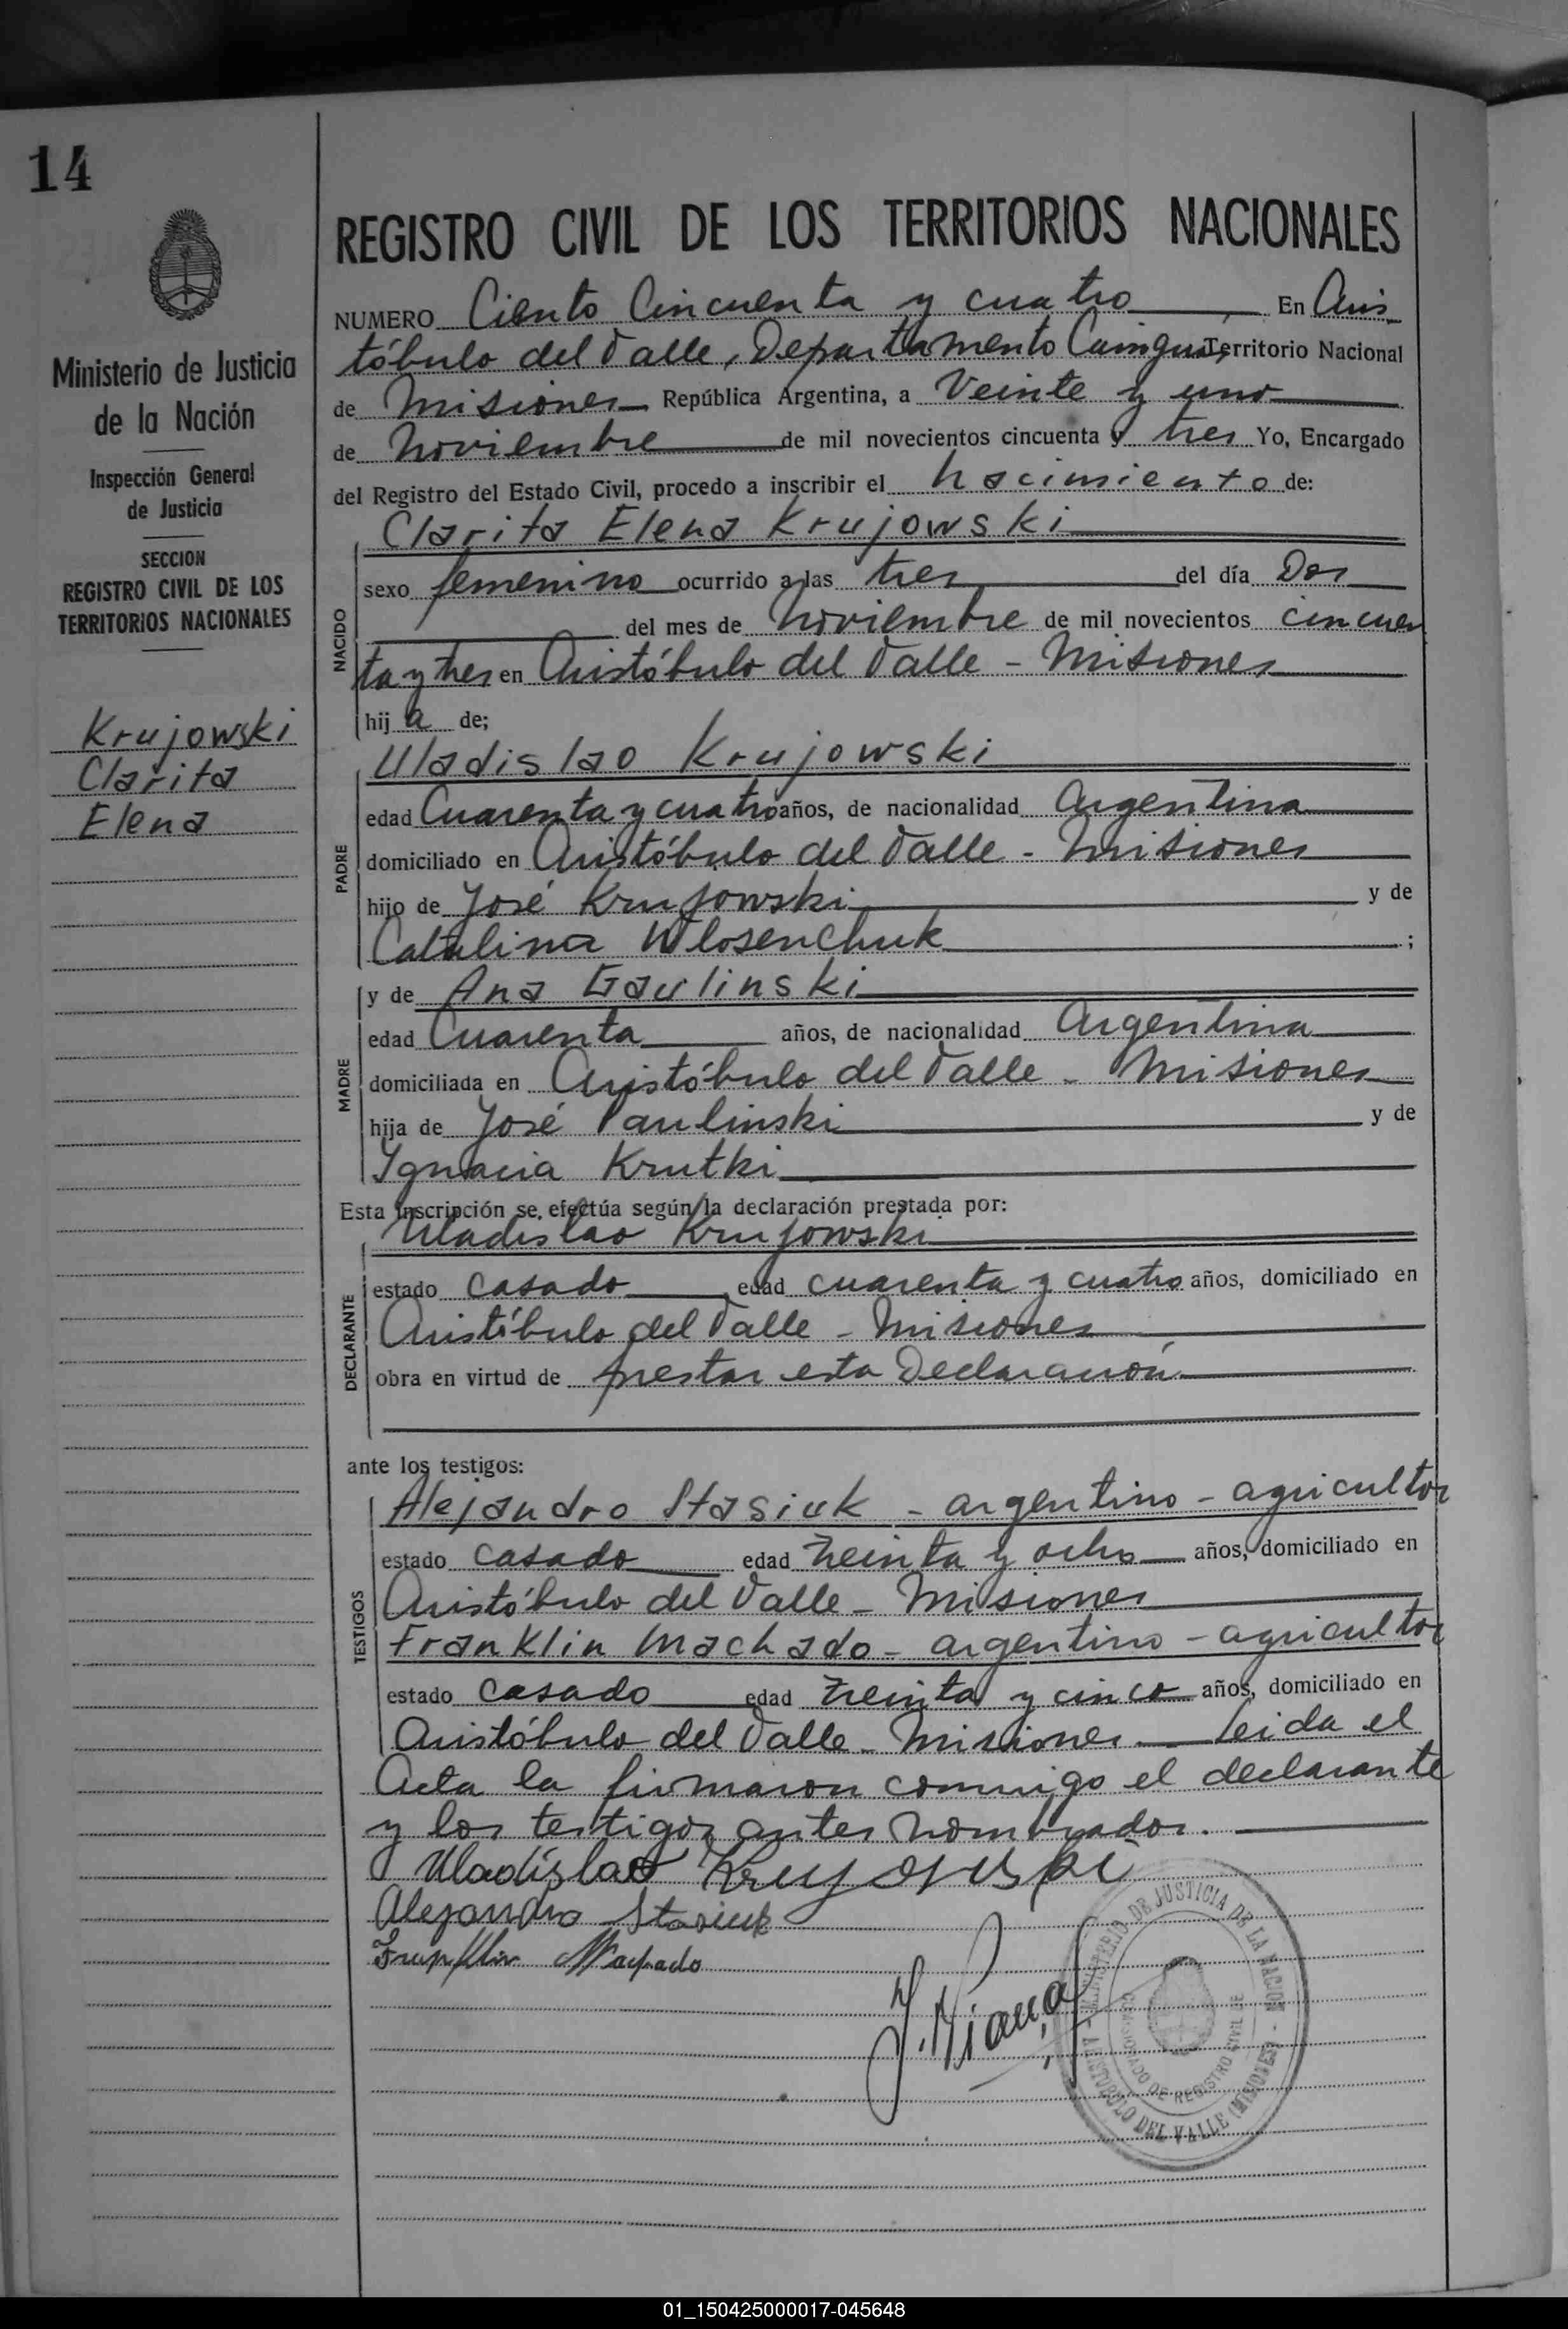 14
Ministerio de Justicia
de la Nación
Inspección General
de Justicia
SECCION
REGISTRO CIVIL DE LOS
TERRITORIOS NACIONALES
Krujowski
Clarita
Elena
REGISTRO CIVIL DE LOS TERRITORIOS NACIONALES
NUMERO Ciento Cincuenta y cuatro En Aris
tóbulo del Valle, Departamento Cainguás, Territorio Nacional
de Misiones República Argentina, a Veinte y uno
de Noviembre de mil novecientos cincuenta y tres Yo, Encargado
del Registro del Estado Civil, procedo a inscribir el nacimiento de:
Clarita Elena Krujowski
NACIDO
sexo femenino ocurrido a las tres del día Dos
del mes de noviembre de mil novecientos cincuen
ta y tres en Aristóbulo del Valle - Misiones
hij a de;
Uladislao Krujowski
PADRE
edad Cuarenta y cuatro años, de nacionalidad Argentina
domiciliado en Aristóbulo del Valle - Misiones
hijo de José Krujowski y de
Catalina Wlosenchuk ;
y de Ana Gaulinski
MADRE
edad Cuarenta años, de nacionalidad Argentina
domiciliada en Aristóbulo del Valle - Misiones
hija de José Paulinski y de
Ygnacia Krutki
Esta inscripción se efectúa según la declaración prestada por:
Uladislao Krujowski
DECLARANTE
estado casado edad cuarenta y cuatro años, domiciliado en
Aristóbulo del Valle - Misiones
obra en virtud de prestar esta Declaración
ante los testigos:
Alejandro Stasiuk - argentino - agricultor
TESTIGOS
estado casado edad treinta y ocho años, domiciliado en
Aristóbulo del Valle - Misiones
Franklin Machado - argentino - agricultor
estado casado edad treinta y cinco años, domiciliado en
Aristóbulo del Valle - Misiones - Leida el
Acta la firmaron conmigo el declarante
y los testigos antes nombrados.
Uladislao Krujowski
Alejandro Stasiuk
Franklin Machado
MINISTERIO DE JUSTICIA DE LA NACION
REGISTRO CIVIL DE
ARISTOBULO DEL VALLE (MISIONES)
01_150425000017-045648